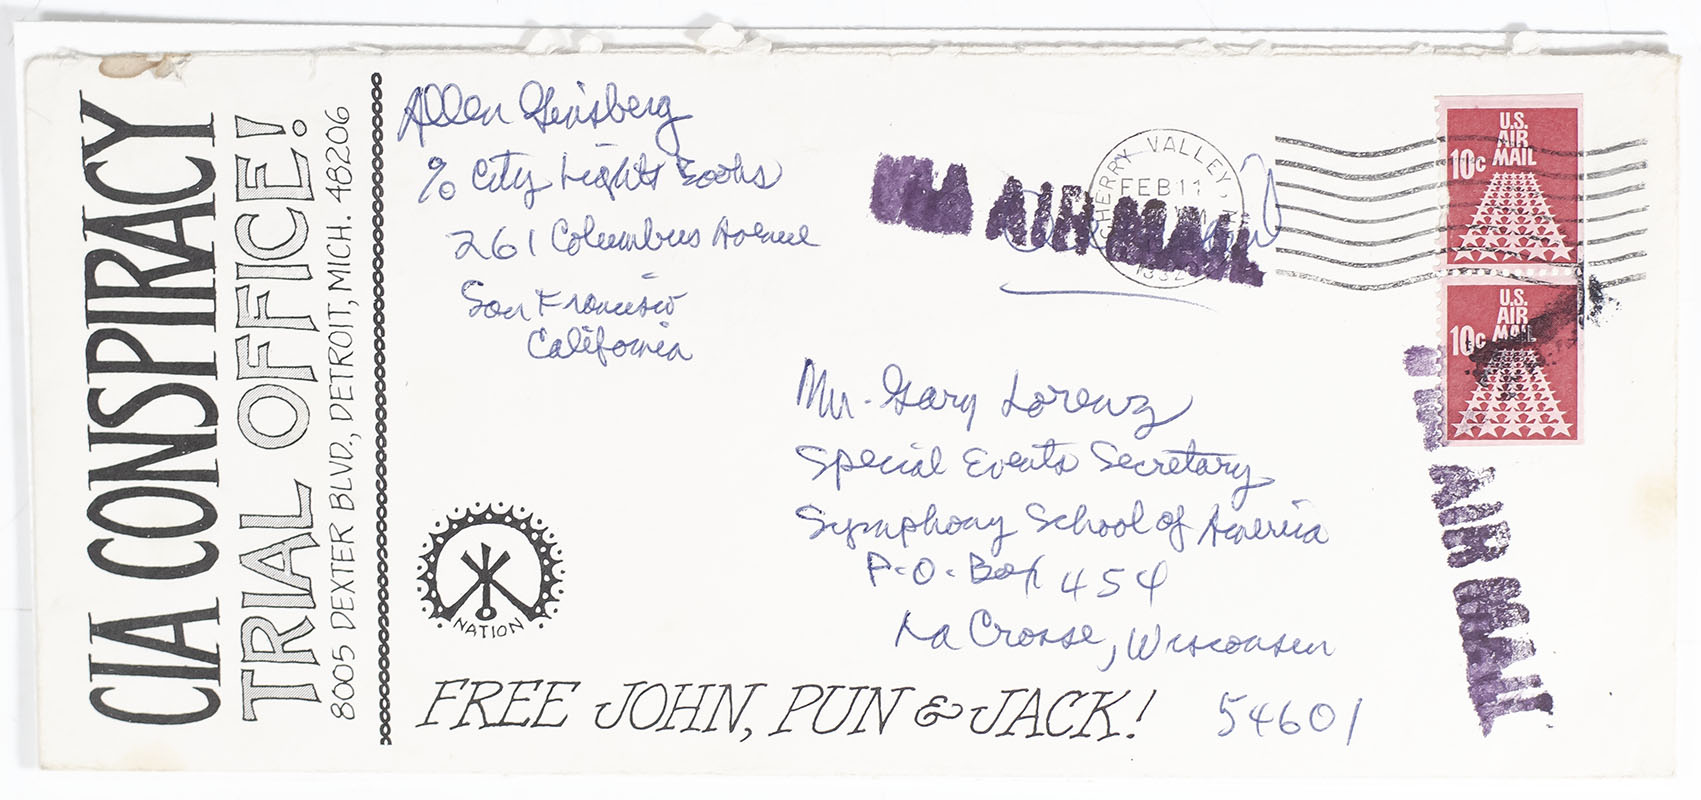 CIA CONSPIRACY
TRIAL OFFICE!
8005 DEXTER BLVD., DETROIT, MICH. 48206
Allen Ginsberg
% City Lights Books
261 Columbus Avenue
San Francisco
California
AIR MAIL
CHERRY VALLEY,
FEB 11
U.S.
AIR
MAIL
10c
U.S.
AIR
MAIL
10c
Mr. Gary Lorenz
Special Events Secretary
Symphony School of America
P.O. Box 454
La Crosse, Wisconsin
54601
AIR MAIL
NATION
FREE JOHN, PUN & JACK!